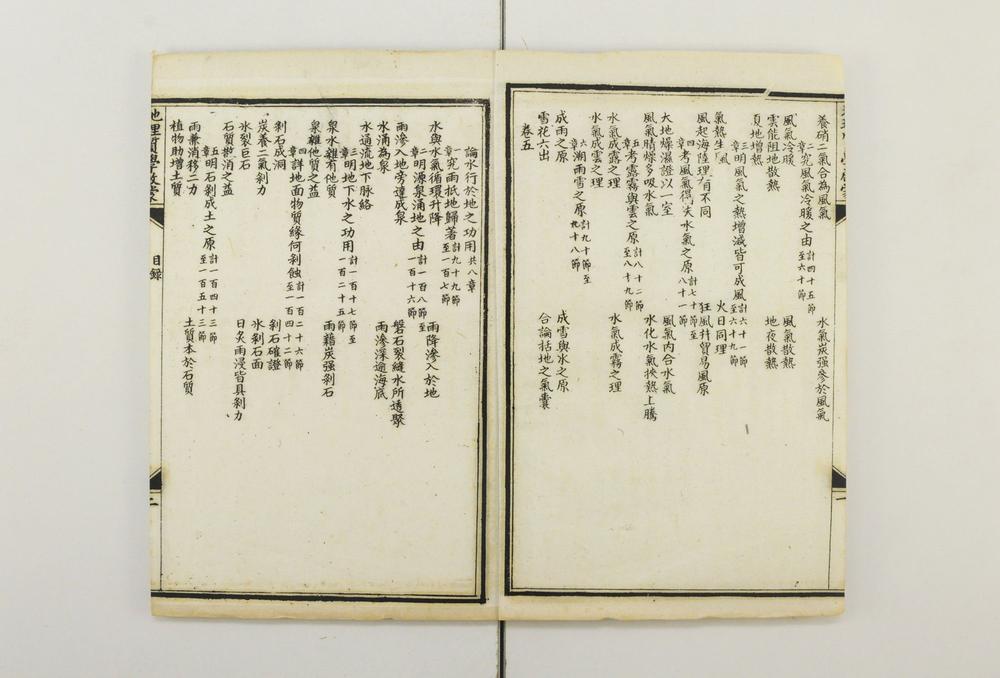 養硝二氣合為風氣
水氣炭强參於風氣
二章 究風氣冷暖之由 計四十五節至六十節
風氣冷暖
風氣散熱
雲能阻地散熱
地夜散熱
頁地增熱
三章 明風氣之熱增減皆可成風 計六十一節至六十九節
氣熱生風
火日同理
風起海陸理有不同
狂風幷貿易風原
四章 考風氣得失水氣之原 計七十節至八十一節
大地燥濕證以一室
風氣內合水氣
風氣晴燥多吸水氣
水化水氣挾熱上騰
五章 考露霧與雲之原 計八十二節至八十九節
水氣成露之理
水氣成霧之理
水氣成雲之理
六章 溯雨雪之原 計九十節至九十八節
成雨之原
成雲與氷之原
雪花六出
合論括地之氣囊
卷五
論水行於地之功用 共八章
一章 究雨抵地歸著 計九十九節至一百七節
水與水氣循環升降
雨降滲入於地
二章 明源泉涌地之由 計一百八節至一百十六節
雨滲入地旁達成泉
磐石裂縫水所透聚
水涌為泉
雨滲深逾海底
水通流地下脉絡
三章 明地下水之功用 計一百十七節至一百二十五節
泉水雜有他質
雨藉炭强剝石
泉雜他質之益
四章 詳地面物質緣何剝蝕 計一百二十六節至一百四十二節
剝石成洞
剝石確證
炭養二氣剝力
氷剝石面
氷裂巨石
日炙雨浸皆具剝力
石質散消之益
五章 明石剝成土之原 計一百四十三節至一百五十三節
雨兼消移二力
土質本於石質
植物助增土質
地理質學啟蒙
目錄
二
一